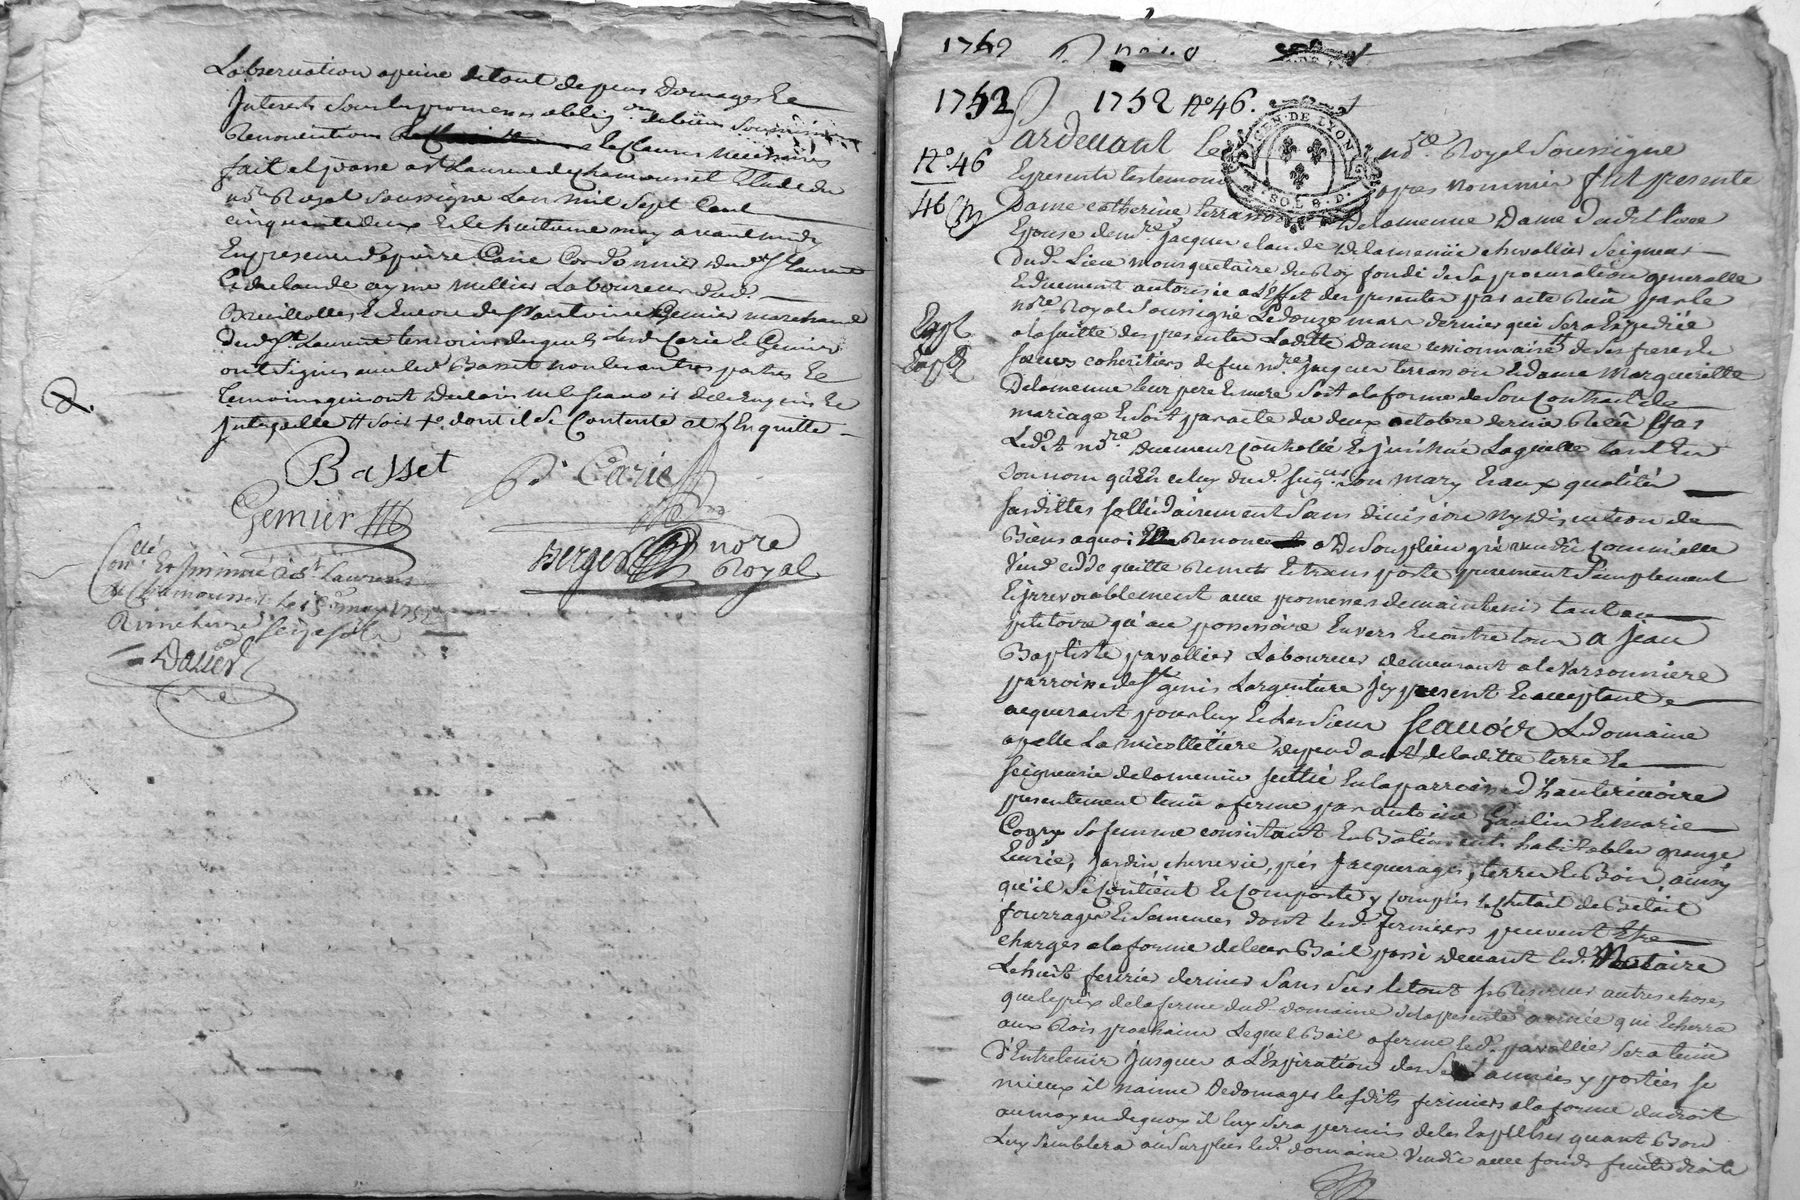 L'observation a peine de tout depens Domages Et
Interets Sous les promesses oblig.ons de biens Soumissions
Renonciations & Clauses necessaires
fait et passé a St Laurent de Chamousset Etude du
no.re Royal Soussigné L'an mil Sept Cent
cinquante deux Et le huitieme may avant midy
En presence de pierre Carie Cordonnier dud. St Laurent
Et de claude ayme mellier Laboureur dud.
Brullioles Et Encore de Sr antoine Gemier marchand
dud. St Laurent temoins lesquels Led. Carie & Gemier
ont Signes avec led. Basset non les autres parties Et
temoins qui ont declaré ne le Scavoir de ce Enquis Et
dont il Se Contente et L'En quitte
Basset
P. Carie
Gemier
Berger no.re Royal
Con.llé Et Insinué à St Laurent
de Chamousset le may 1752
Reçu
Daller
1752
1752 1752 No. 46.
GEN. DE LYON
SOL 8. D.
No. 46
46
Pardevant Le no.re Royal Soussigné
Et presents temoins apres nommés fut presente
Dame catherine terrasson Delamenue Dame dudit lieu
Epouse de m.re jacques claude Delamenüe chevallier Seigneur
Dud. Lieu mousquetaire du Roy fondé de Sa procuration generalle
Et duement autorisée a L'Effet des presentes par acte Reçu par le
no.re Royal Soussigné Le douze mars dernier qui Sera Expediée
Exp.t
Exp.é
a la Suitte des presentes Laditte Dame cessionnaire de Ses freres &
Sœurs coheritiers de feu m.re jacques terrasson & dame Marguerite
Delamenue leur pere & mere Soit a la forme de Son Contrat de
mariage Et Soit par acte du deux octobre dernier Reçû Par
Led.t no.re Duement controllé & Insinué Laquelle tant En
Son nom qu'En celuy dud. Seig.r Son mary Et aux qualités
Susdittes Sollidairement Sans division ny discution de
Biens a quoi Elle Renonce a De Son plein gré vendû comme Elle
Vend cedde quitte Remet & transporte purement Simplement
& irrevocablement avec promesse de maintenir tant au
petitoire qu'au possessoire Envers & contre tous a jean
Baptiste pavallier Laboureur demeurant a la Varsonniere
parroisse de St genis L'argentiere Icy present & acceptant &
acquerant pour luy & les Siens Scavoir Le domaine
apellé La micolletiere dependant de laditte terre &
Seigneurie delamenüe Scitué En la parroisse d'hauterivoire
presentement tenû a ferme par antoine Gaulin & marie
Cogny Sa femme consistant En Batiments habitables grange
Ecurie, jardin cheneviere, prés pacquerages, terres & Bois, ainsy
qu'il Se Contient & Comporte y compris le cheptait de Betail
fourrages & Semences dont lesd. fermiers peuvent Etre
chargés a la forme de leur Bail passé devant led. Notaire
Le huit fevrier dernier Sans Sur le tout Se Reserver autres choses
que le prix de la ferme dud. domaine de la presente année qui Echerra
aux Rois prochains Lequel Bail a ferme led. pavallier Sera tenû
d'Entretenir jusques a L'Expiration des Six années y portées Se
mieux il n'aime Dedomager lesdits fermiers a la forme du droit
au moyen de quoy il luy Sera permis de les Expulser quant Bon
Luy Semblera au Surplus led. domaine Vendû avec fonds fruits droits